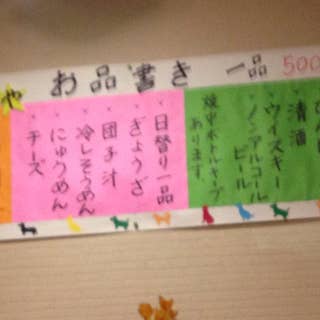 や お品書き 一品 500
清酒
ウイスキー
ノンアルコール
ビール
焼中ボトルキープ
あります。
日替り一品
ぎょうざ
団子汁
冷しそうめん
にゅうめん
チーズ